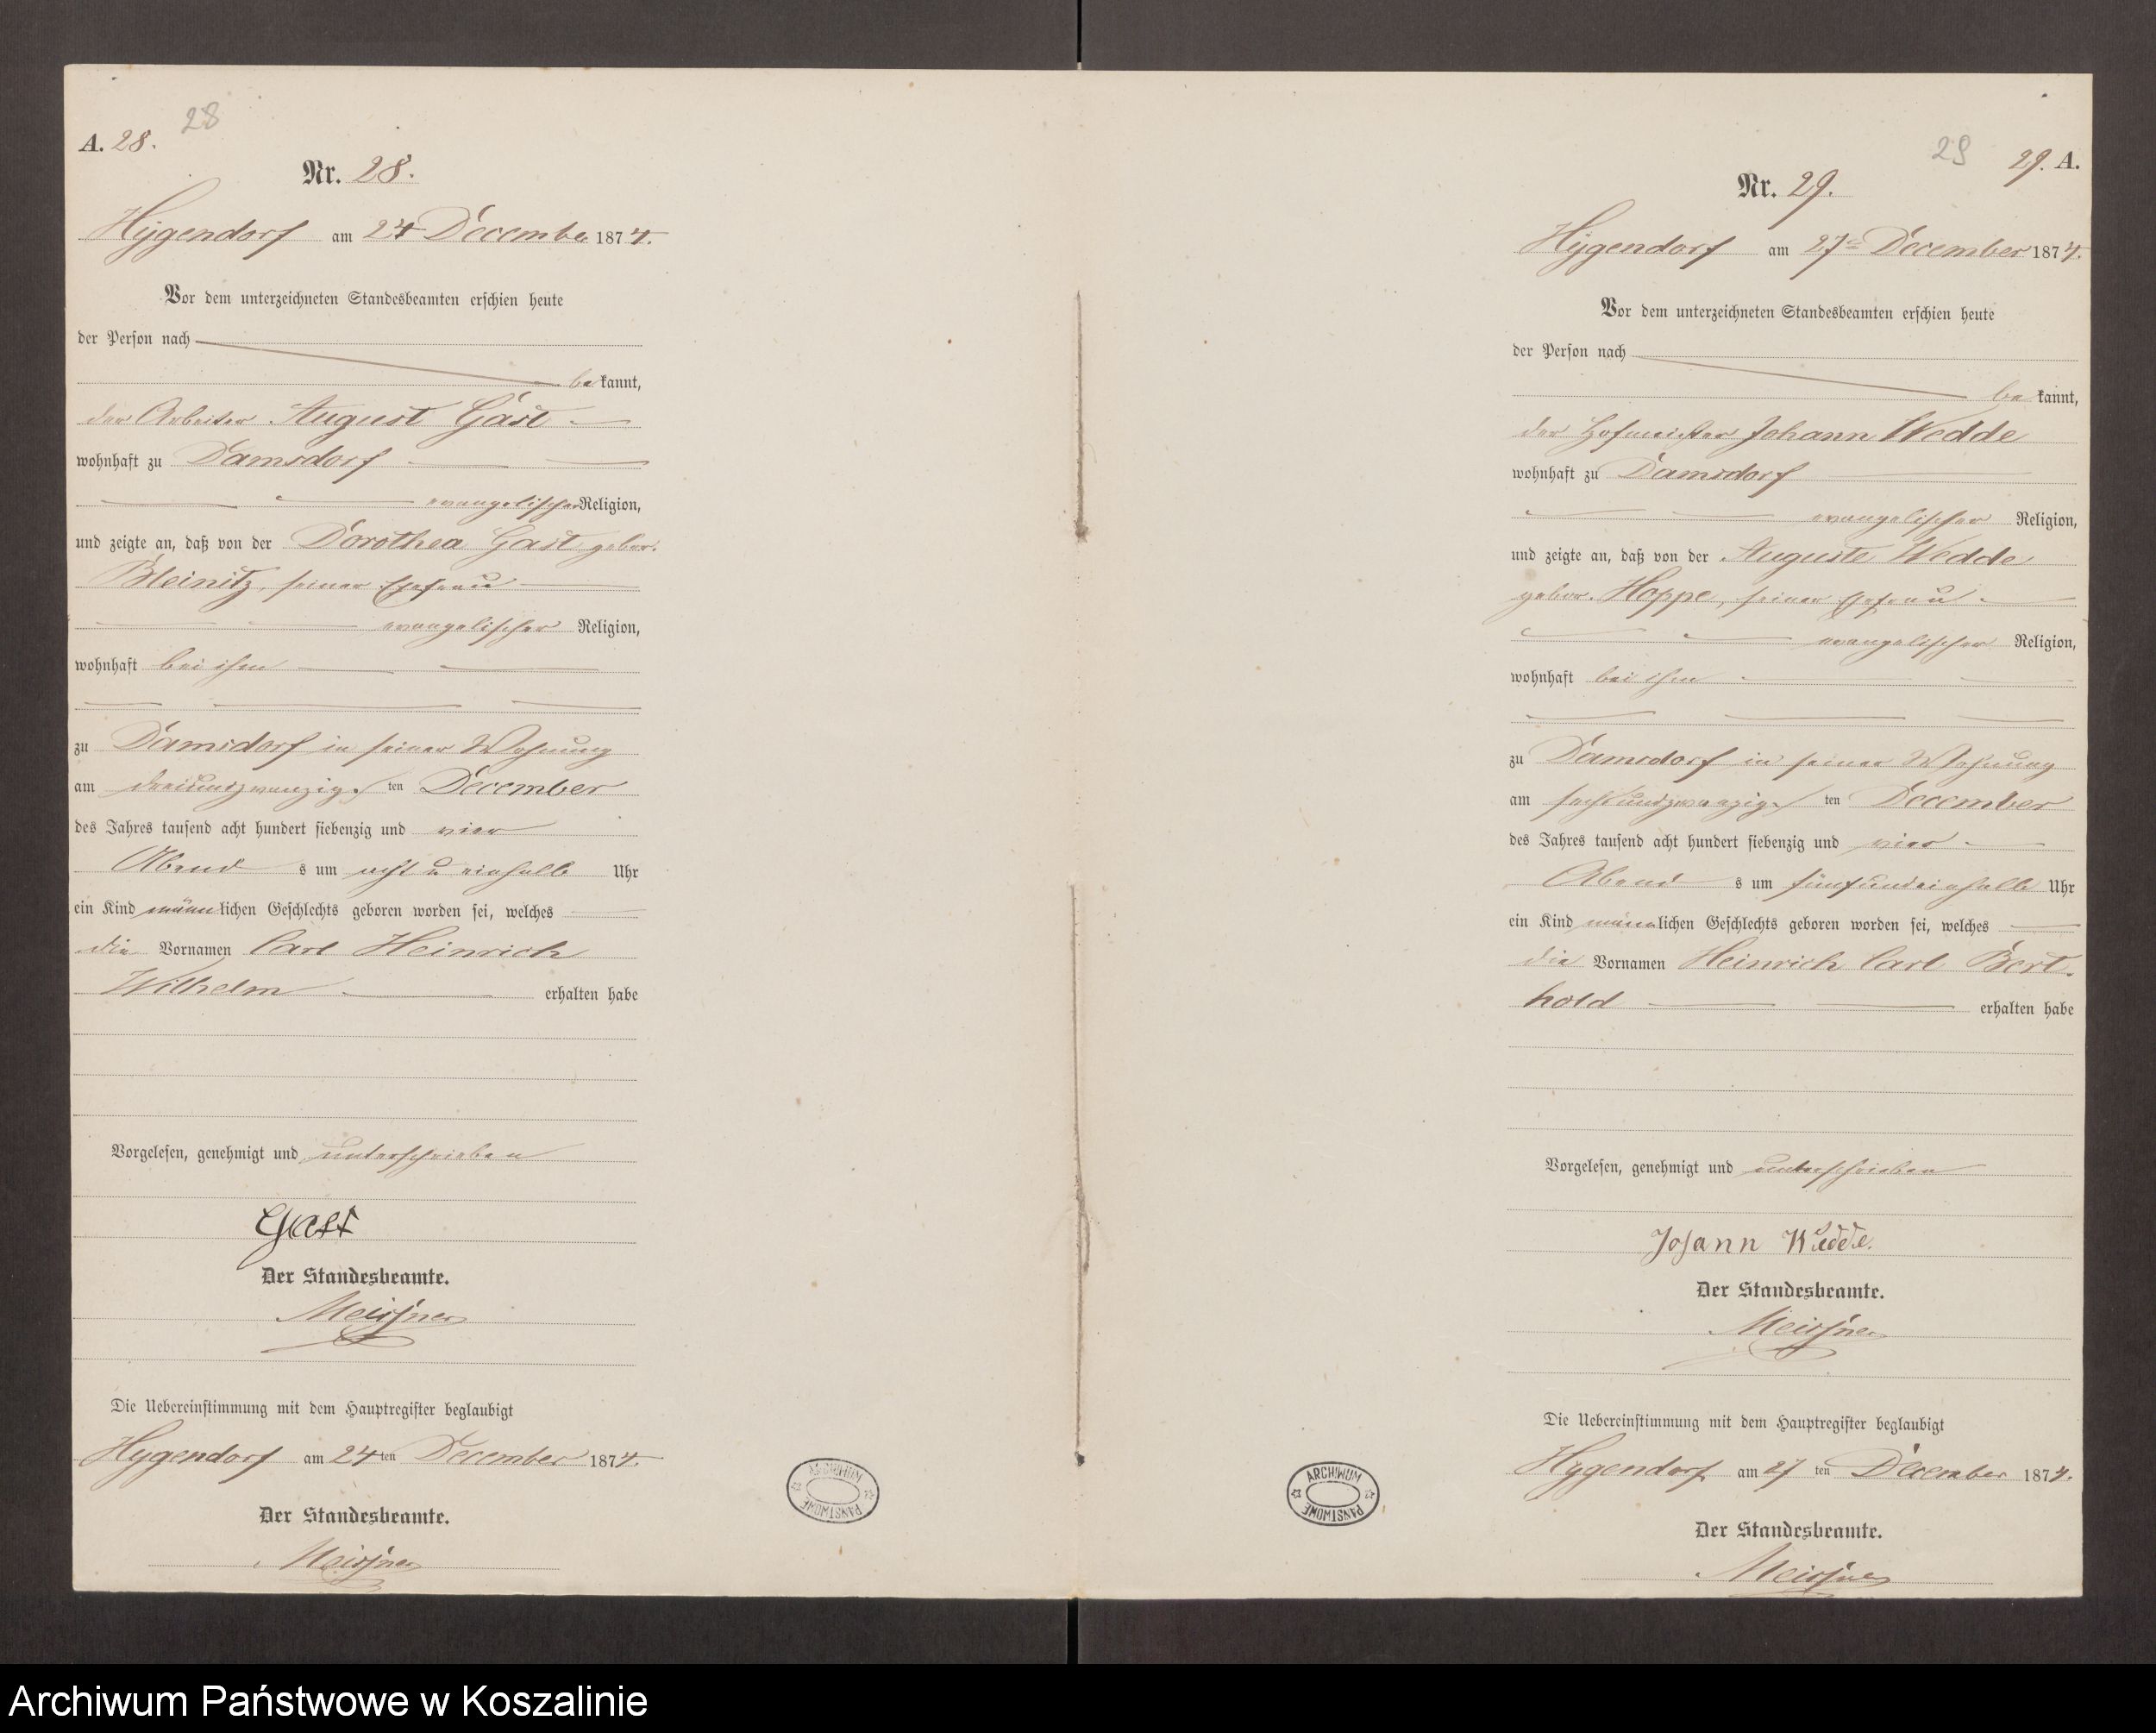 28
A. 28.
Nr. 28.
Hygendorf am 24 December 1874.
Vor dem unterzeichneten Standesbeamten erschien heute
der Person nach
bekannt,
der Arbeiter August Gast
wohnhaft zu Damsdorf
evangelischer Religion,
und zeigte an, daß von der Dorothea Gast gebor.
Bleinitz, seiner Ehefrau
evangelischer Religion,
wohnhaft bei ihm
zu Damsdorf in seiner Wohnung
am dreiundzwanzigsten December
des Jahres tausend acht hundert siebenzig und vier
Abends um acht u einhalb Uhr
ein Kind männlichen Geschlechts geboren worden sei, welches
die Vornamen Carl Heinrich
Wilhelm erhalten habe
Vorgelesen, genehmigt und unterschrieben
Gast
Der Standesbeamte.
Meissner
Die Uebereinstimmung mit dem Hauptregister beglaubigt
Hygendorf am 24ten December 1874.
Der Standesbeamte.
Meissner
ARCHIWUM PAŃSTWOWE
29
29. A.
Nr. 29.
Hygendorf am 27n December 1874.
Vor dem unterzeichneten Standesbeamten erschien heute
der Person nach
bekannt,
der Hofmeister Johann Wedde
wohnhaft zu Damsdorf
evangelischer Religion,
und zeigte an, daß von der Auguste Wedde
gebor. Hoppe, seiner Ehefrau
evangelischer Religion,
wohnhaft bei ihm
zu Damsdorf in seiner Wohnung
am sechsundzwanzigsten December
des Jahres tausend acht hundert siebenzig und vier
Abends um fünfundeinhalb Uhr
ein Kind männlichen Geschlechts geboren worden sei, welches
die Vornamen Heinrich Carl Bert-
hold erhalten habe
Vorgelesen, genehmigt und unterschrieben
Johann Wedde.
Der Standesbeamte.
Meissner
Die Uebereinstimmung mit dem Hauptregister beglaubigt
Hygendorf am 27ten December 1874.
Der Standesbeamte.
Meissner
ARCHIWUM PAŃSTWOWE
Archiwum Państwowe w Koszalinie